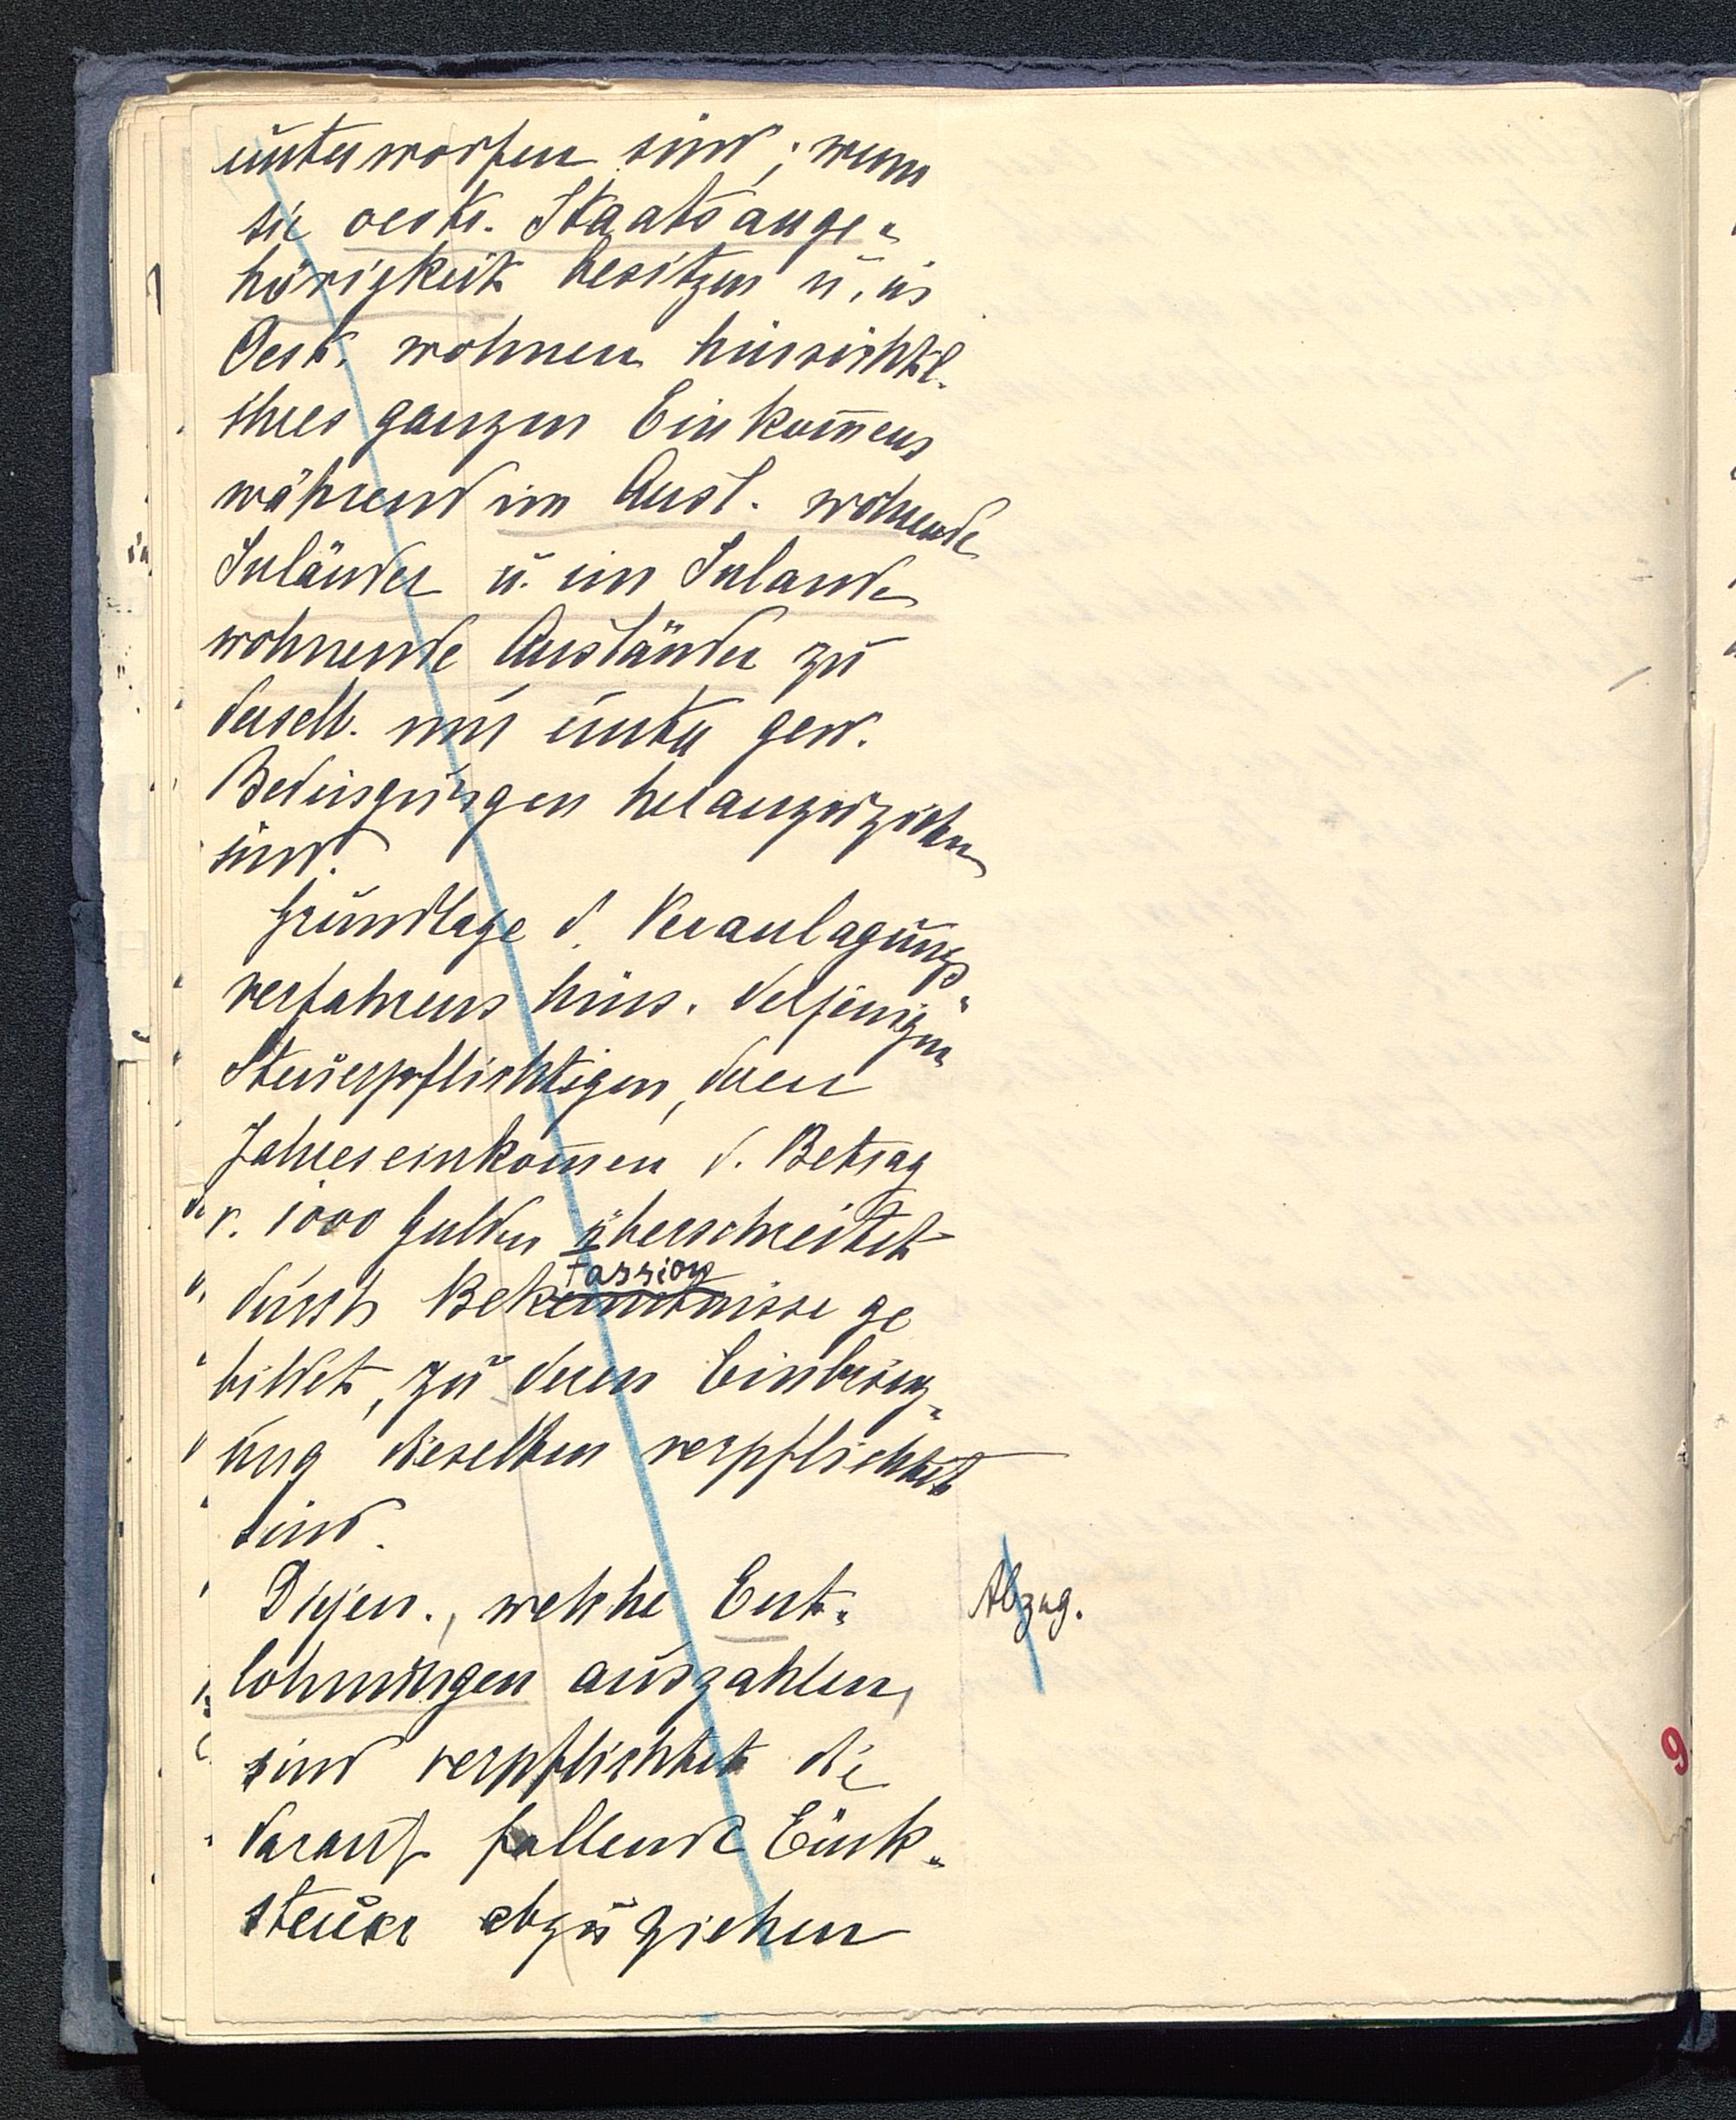 unterworfen sind, wenn
sie oestr. Staatsange-
hörigkeit besitzen u. in
Oest. wohnen hinsichtl.
ihres ganzen Einkom̅ens
während im Ausl. wohnende
Inländer u. im Inlande
wohnende Ausländer zu
derselb. nur unter gew.
Bedingungen heranzuziehen
sind.
Grundlage d. Veranlagungs-
verfahrens hins. derjenigen
Steuerpflichtigen, deren
Jahreseinkom̅en d. Betrag
v. 1000 Gulden überschreitet
Fassion
durch Bekenntnisse ge
bildet, zu deren Einbring-
ung dieselben verpflichtet
sind.
Diejen., welche Ent-
lohnungen auszahlen,
sind verpflichtet die
darauf fallende Eink-
steuer abzuziehen
Abzug.
9